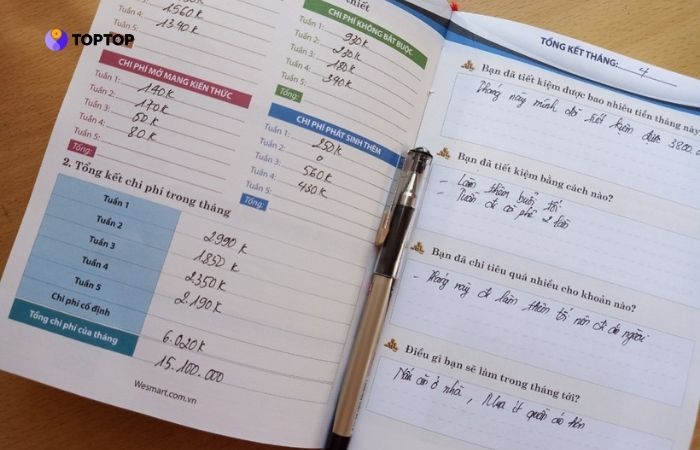 TOPTOP
Tuần 4: 1560 K
Tuần 5: 1340 K
CHI PHÍ MỞ MANG KIẾN THỨC
Tuần 1: 140 K
Tuần 2: 170 K
Tuần 3: 60 K
Tuần 4: 80 K
Tuần 5:
Tổng:
thiết
CHI PHÍ KHÔNG BẮT BUỘC
Tuần 1: 930 K
Tuần 2: 230 K
Tuần 3: 180 K
Tuần 4: 390 K
Tuần 5:
Tổng:
CHI PHÍ PHÁT SINH THÊM
Tuần 1: 250 K
Tuần 2: 0
Tuần 3: 560 K
Tuần 4: 450 K
Tuần 5:
Tổng:
2. Tổng kết chi phí trong tháng
Tuần 1 2990 K
Tuần 2 1850 K
Tuần 3 2350 K
Tuần 4 2.190 K
Tuần 5
Chi phí cố định 6.020 K
Tổng chi phí của tháng 15.100.000
Wesmart.com.vn
TỔNG KẾT THÁNG: 4
Bạn đã tiết kiệm được bao nhiêu tiền tháng này
Tháng này mình đã tiết kiệm được
Bạn đã tiết kiệm bằng cách nào?
- Làm thêm buổi tối
- Tuần đi cà phê 2 lần
Bạn đã chi tiêu quá nhiều cho khoản nào?
- Tháng này đi làm thêm tối nên đi ăn ngoài
Điều gì bạn sẽ làm trong tháng tới?
Nấu ăn ở nhà, Mua ít quần áo hơn